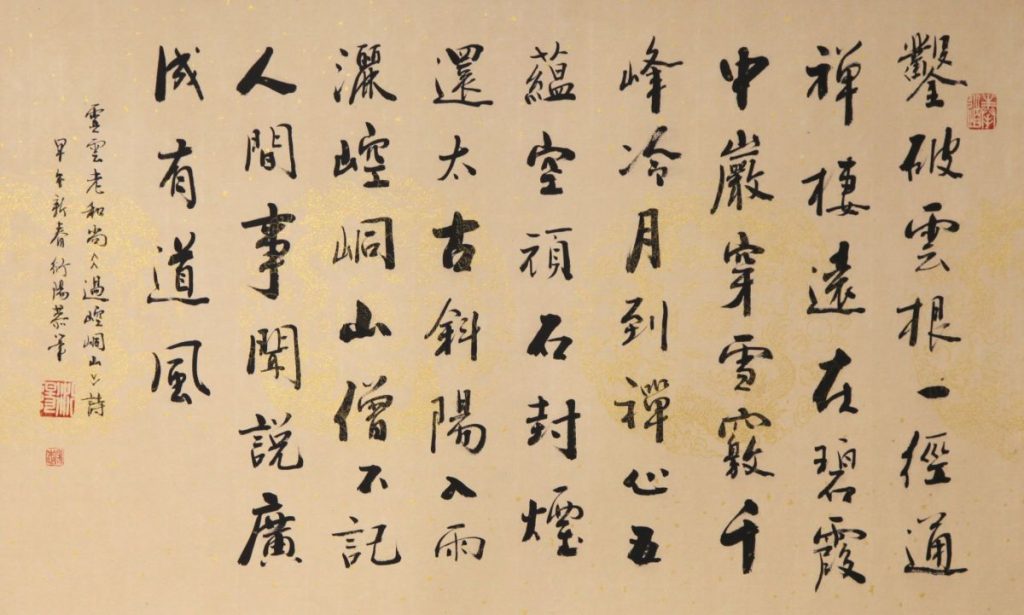 鑿破雲根一徑通
禪棲遠在碧霞
中巖穿雪竅千
峰冷月到禪心五
蘊空頑石封煙
還太古斜陽入雨
灑崆峒山僧不記
人間事聞說廣
成有道風
虛雲老和尚過崆峒山詩
甲午新春衍陽恭筆